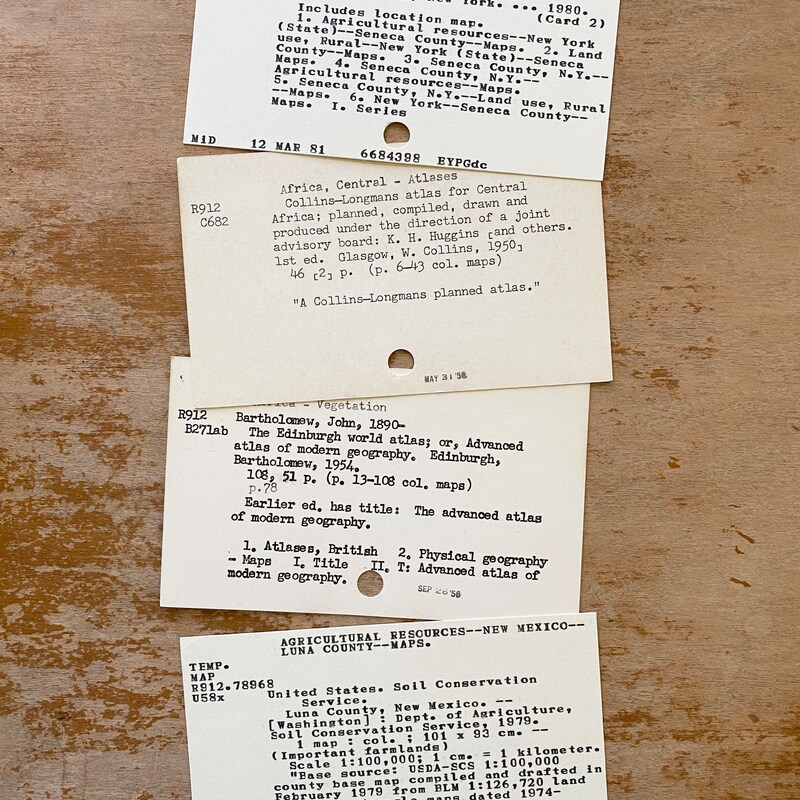 New York. ... 1980.
Includes location map. (Card 2)
1. Agricultural resources--New York
(State)--Seneca County--Maps. 2. Land
use, Rural--New York (State)--Seneca
County--Maps. 3. Seneca County, N.Y.--
Maps. 4. Seneca County, N.Y.--
Agricultural resources--Maps.
5. Seneca County, N.Y.--Land use, Rural
--Maps. 6. New York--Seneca County--
Maps. I. Series
MiD 12 MAR 81 6684398 EYPGdc
Africa, Central - Atlases
R912 Collins-Longmans atlas for Central
C682 Africa; planned, compiled, drawn and
produced under the direction of a joint
advisory board: K. H. Huggins [and others.
1st ed. Glasgow, W. Collins, 1950]
46 [2] p. (p. 6-43 col. maps)
"A Collins-Longmans planned atlas."
MAY 31 '56
- Vegetation
R912 Bartholomew, John, 1890-
B271ab The Edinburgh world atlas; or, Advanced
atlas of modern geography. Edinburgh,
Bartholomew, 1954.
108, 51 p. (p. 13-108 col. maps)
p.78
Earlier ed. has title: The advanced atlas
of modern geography.
1. Atlases, British 2. Physical geography
- Maps I. Title II. T: Advanced atlas of
modern geography.
SEP '56
AGRICULTURAL RESOURCES--NEW MEXICO--
LUNA COUNTY--MAPS.
TEMP.
MAP
R912.78968
U58x United States. Soil Conservation
Service.
Luna County, New Mexico. --
[Washington] : Dept. of Agriculture,
Soil Conservation Service, 1979.
1 map : col. ; 101 x 93 cm. --
(Important farmlands)
Scale 1:100,000; 1 cm. = 1 kilometer.
"Base source: USDA-SCS 1:100,000
county base map compiled and drafted in
February 1979 from BLM 1:126,720 land
maps dated 1974-